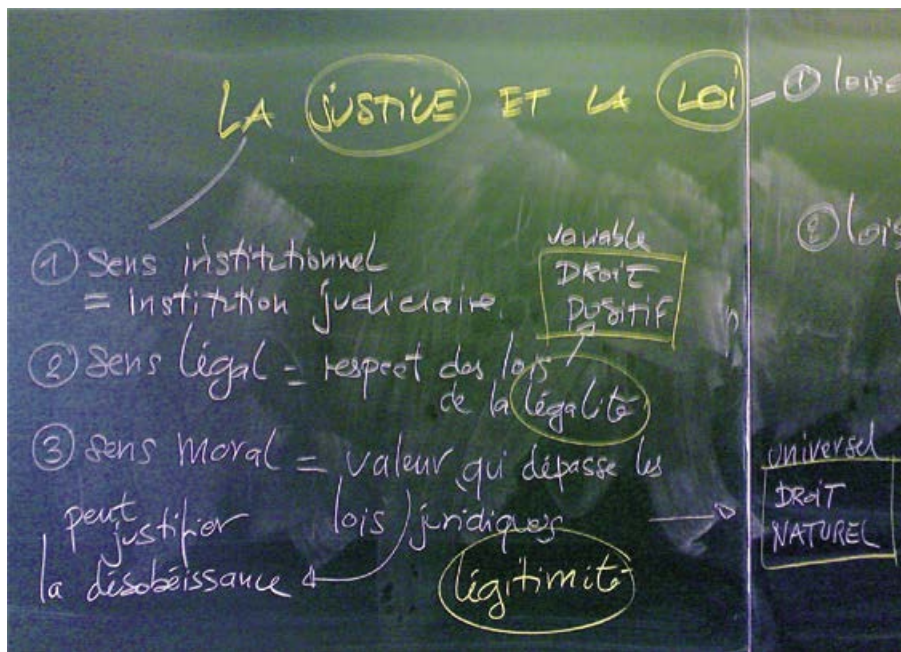 LA JUSTICE ET LA LOI
① Sens institutionnel
= institution judiciaire.
variable
DROIT
POSITIF
② Sens légal = respect des lois
de la légalité
③ Sens moral = valeur qui dépasse les
lois juridiques
peut
justifier
la désobéissance
légitimité
①
②
universel
DROIT
NATUREL